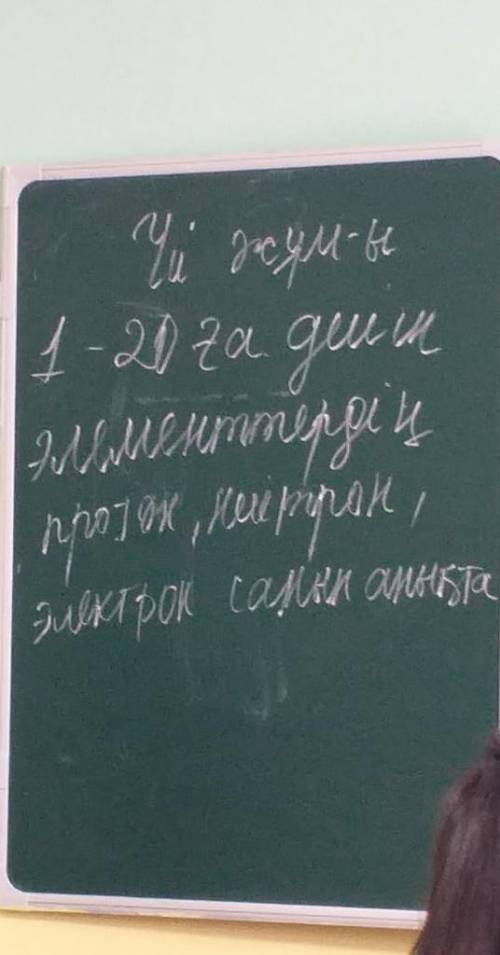 Үй жұм-ы
1-20 ға дейін
элементтердің
протон, нейтрон,
электрон санын анықта